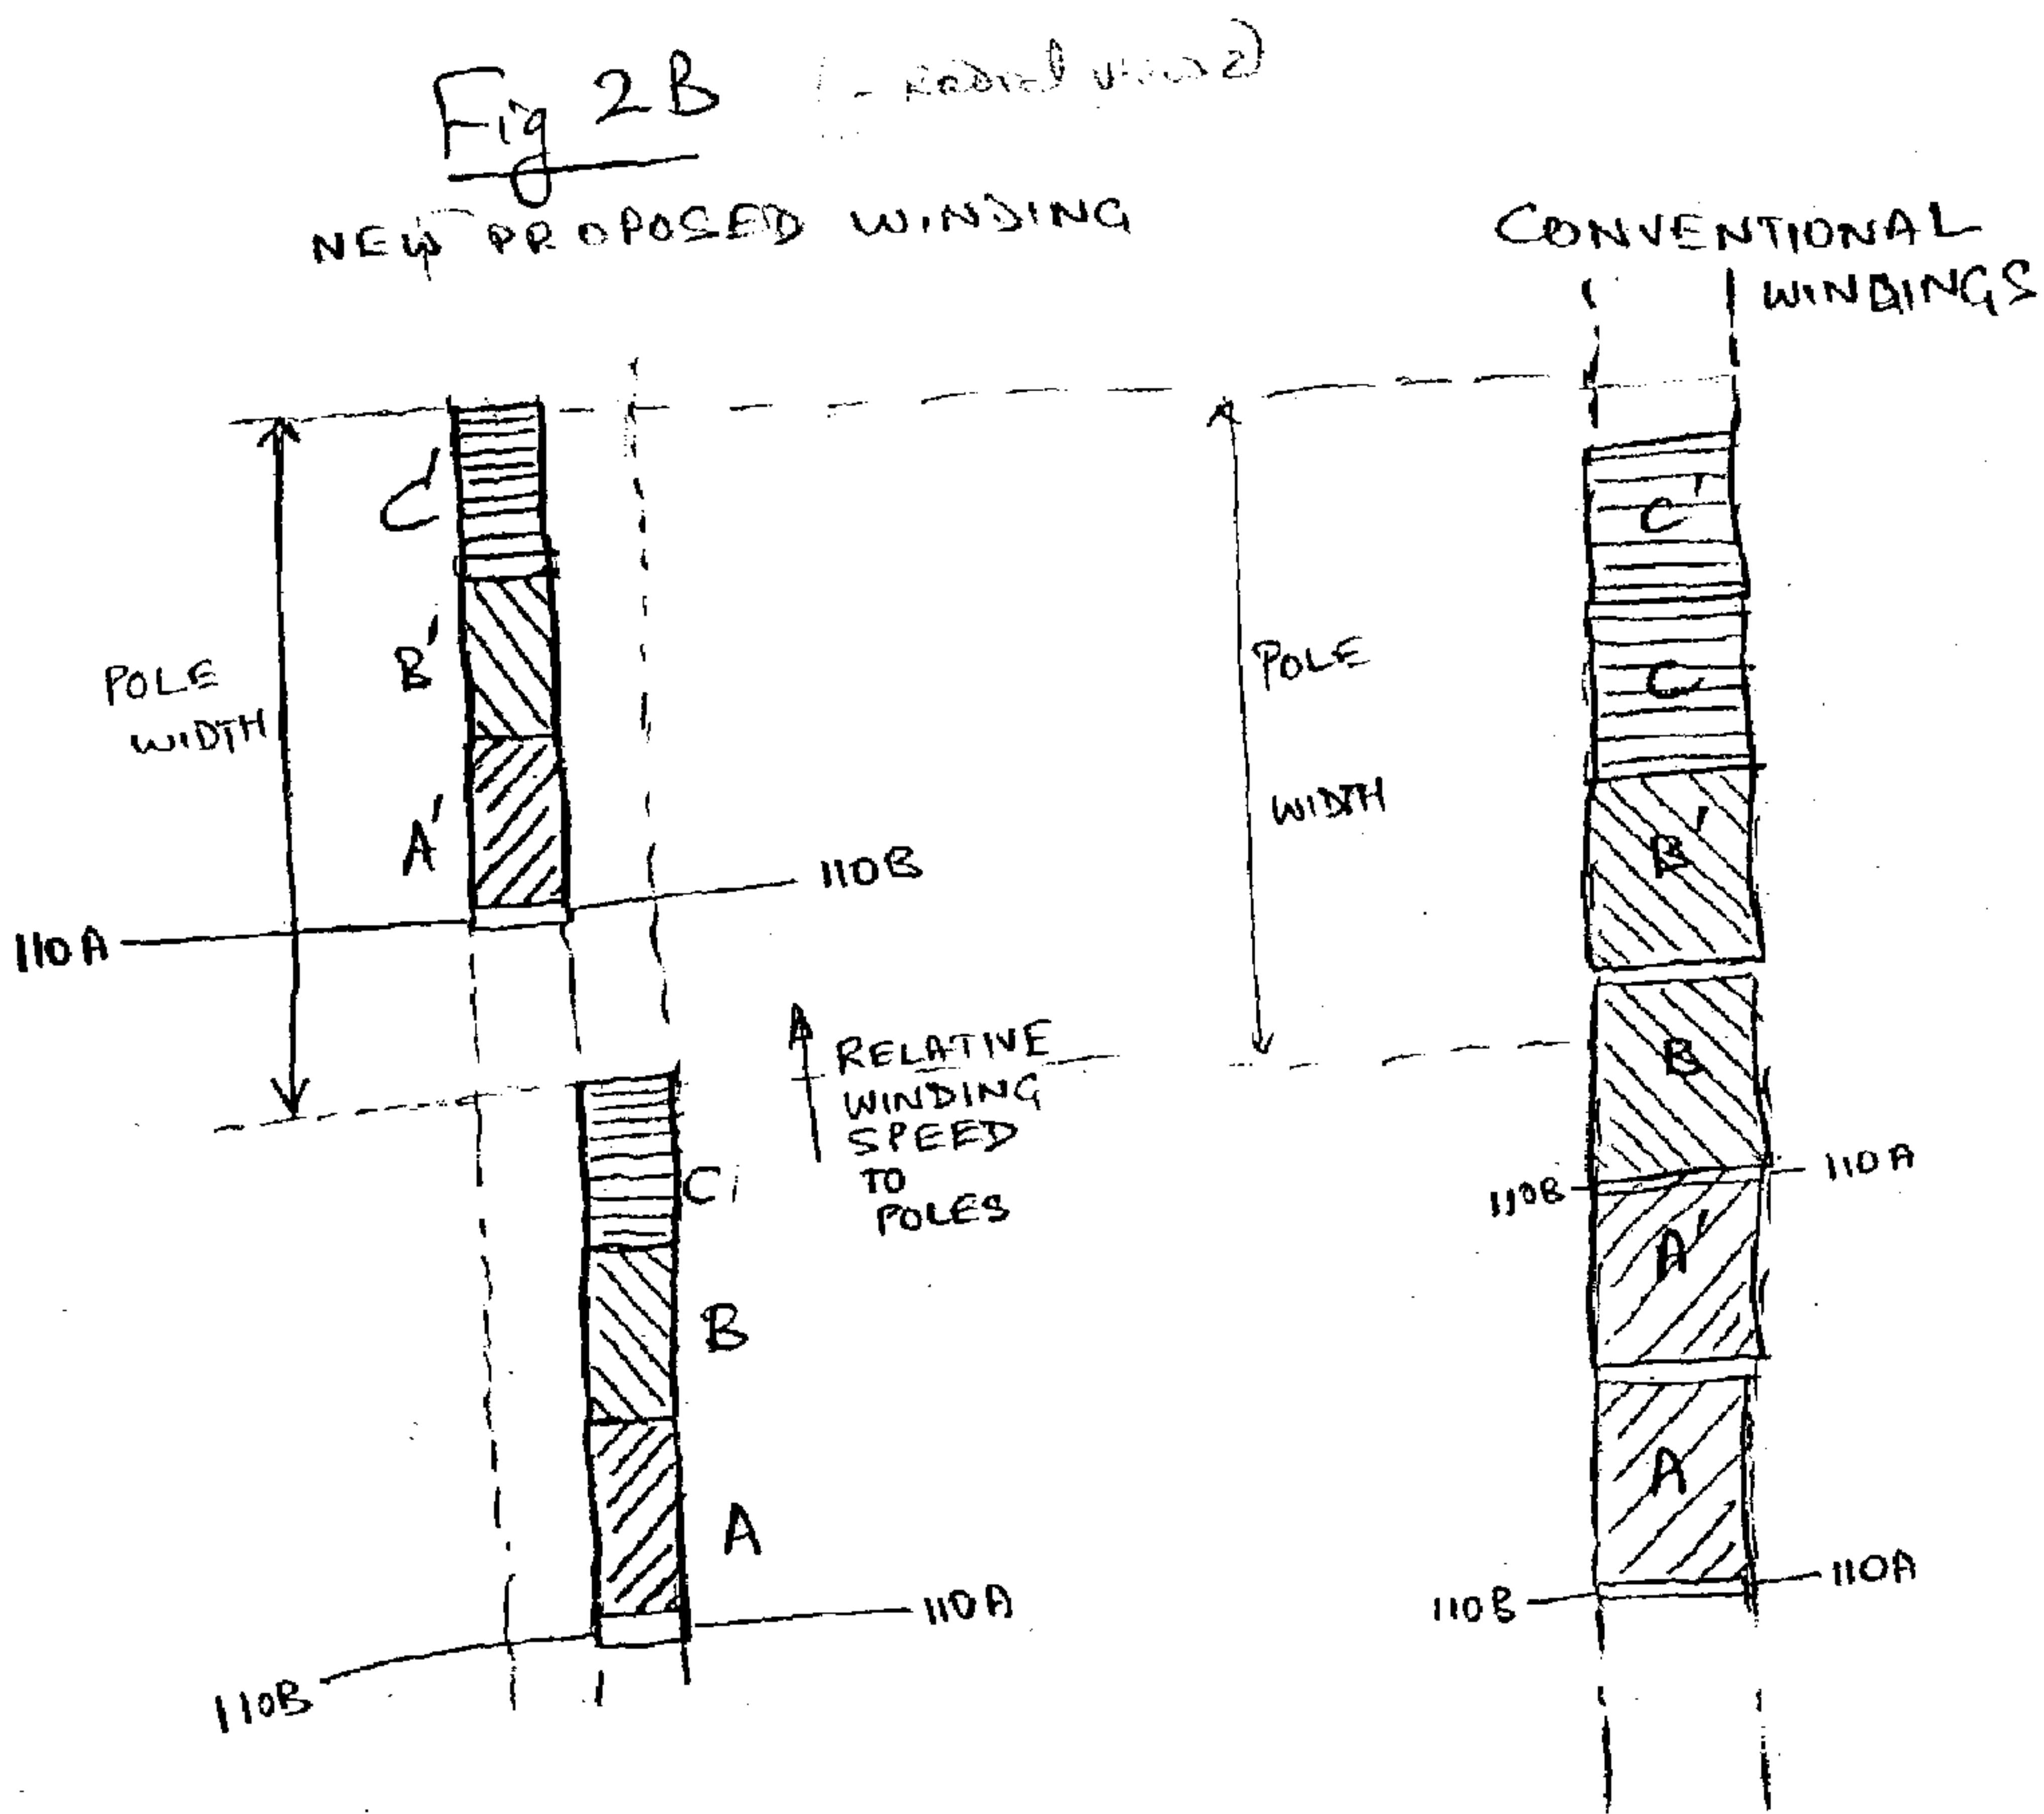 Fig 2B
NEW PROPOSED WINDING
CONVENTIONAL
WINDINGS
C'
B'
A'
POLE
WIDTH
110A
110B
RELATIVE
WINDING
SPEED
TO
POLES
C
B
A
110A
110B
POLE
WIDTH
C'
C
B'
B
110B
110A
A'
A
110B
110A